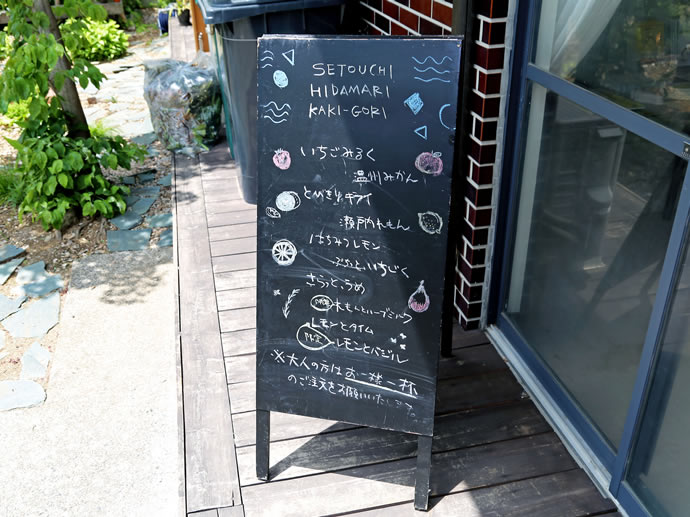 SETOUCHI
HIDAMARI
KAKI-GORI
いちごみるく
温州みかん
とびきりキウイ
瀬戸内れもん
はちみつレモン
ぷちっと、いちじく
さらっと、うめ
れもんとハーブミルク
レモンとタイム
レモンとバジル
※大人の方はお一様一杯
のご注文をお願いいたします。